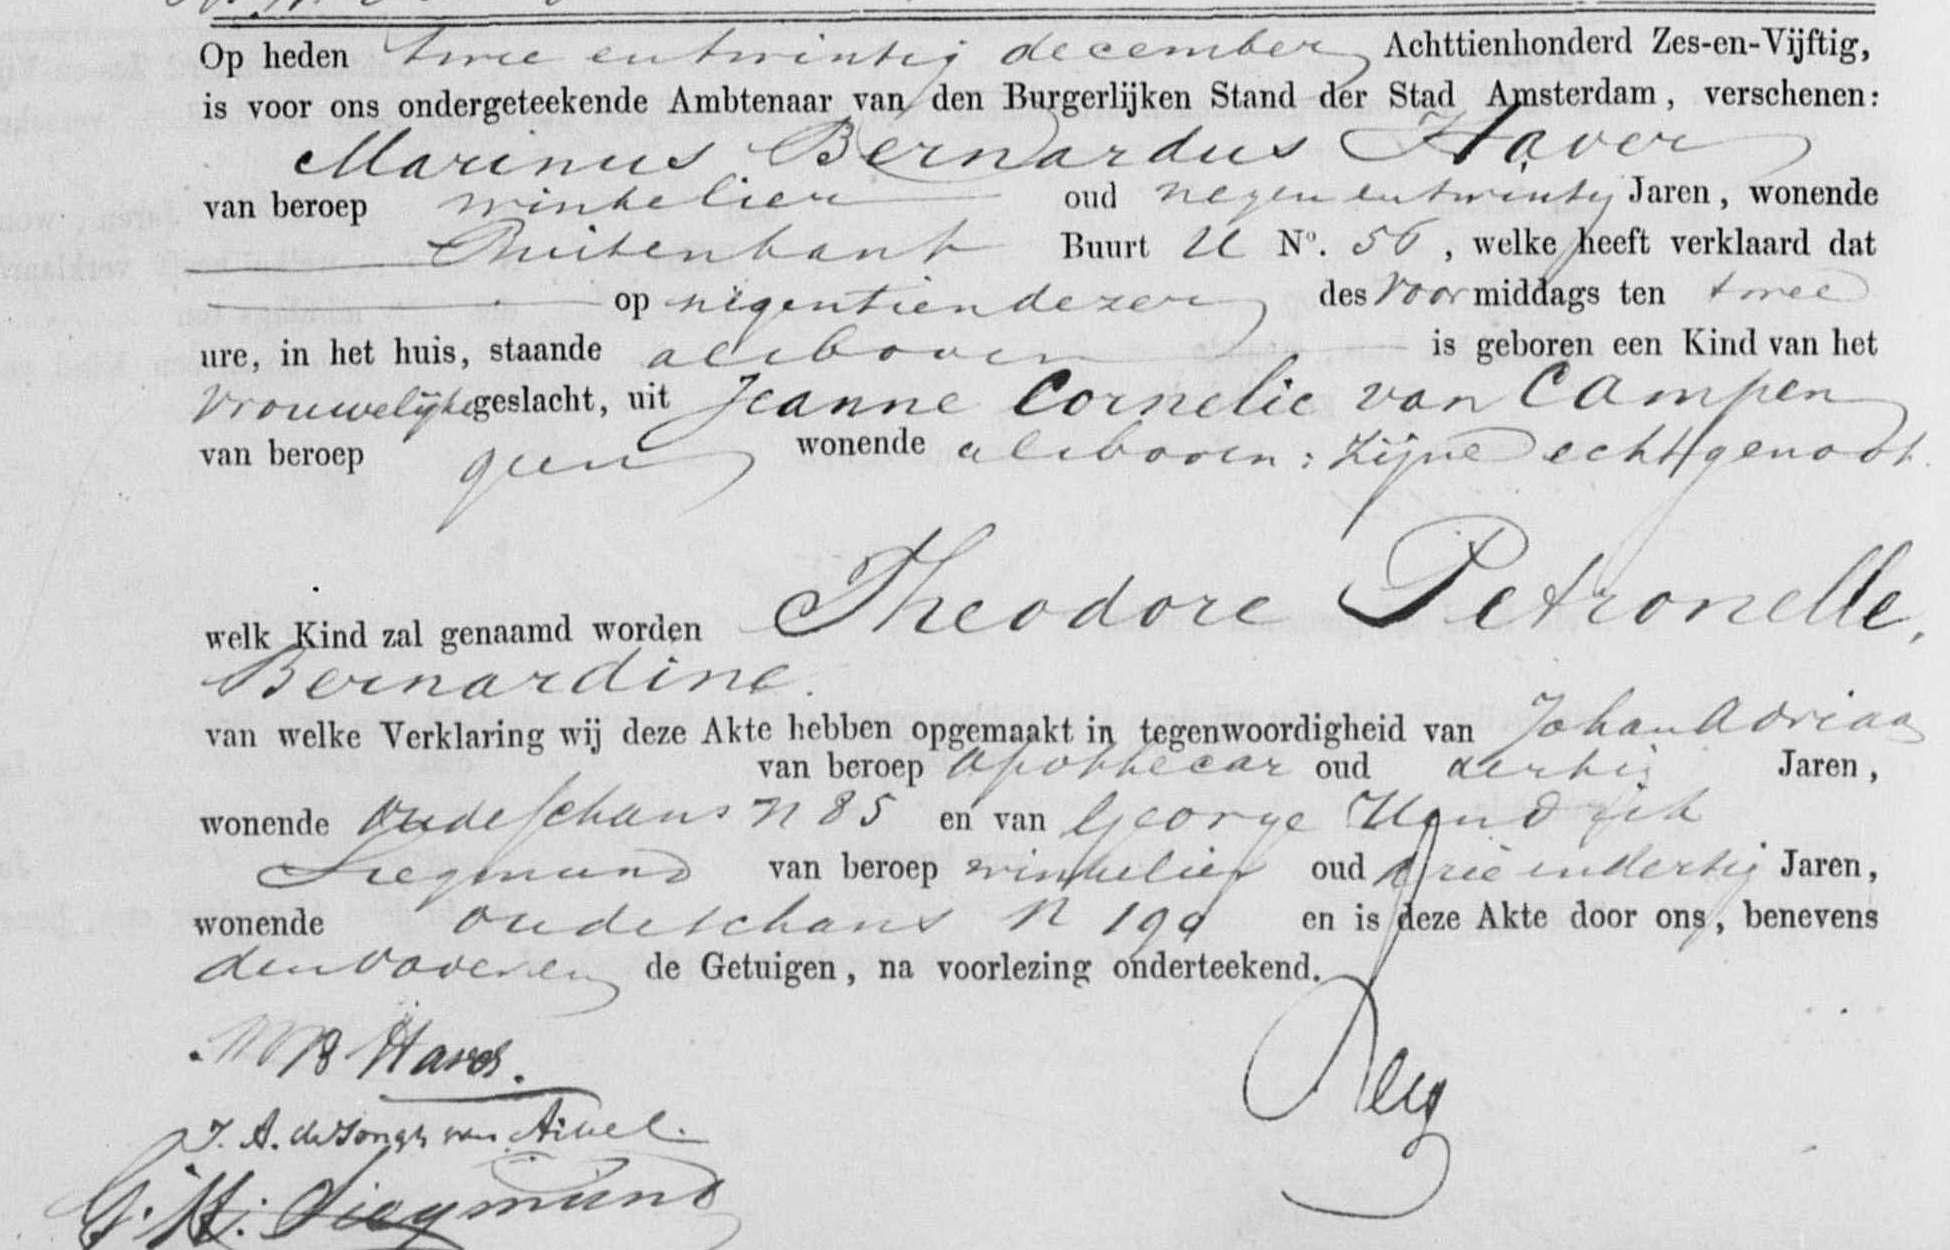 Op heden twee en twintig december Achttienhonderd Zes-en-Vijftig,
is voor ons ondergeteekende Ambtenaar van den Burgerlijken Stand der Stad Amsterdam, verschenen:
Marinus Bernardus Haver
van beroep winkelier oud negen en twintig Jaren, wonende
Buitenkant Buurt U No. 56, welke heeft verklaard dat
op negentien dezer des Voormiddags ten twee
ure, in het huis, staande alsboven is geboren een Kind van het
Vrouwelijke geslacht, uit Jeanne Cornelie van Campen
van beroep geen wonende alsboven: zijne echtgenoot.
welk Kind zal genaamd worden Theodore Petronelle,
Bernardine.
van welke Verklaring wij deze Akte hebben opgemaakt in tegenwoordigheid van Johan Adriaan
van beroep Apothecar oud dertig Jaren,
wonende oudeschans N 85 en van George Hendrik
Siegmund van beroep winkelier oud drie en dertig Jaren,
wonende oudeschans N 199 en is deze Akte door ons, benevens
den vader en de Getuigen, na voorlezing onderteekend.
M B Haver.
J. A. de Jongh van
G. H. Siegmund